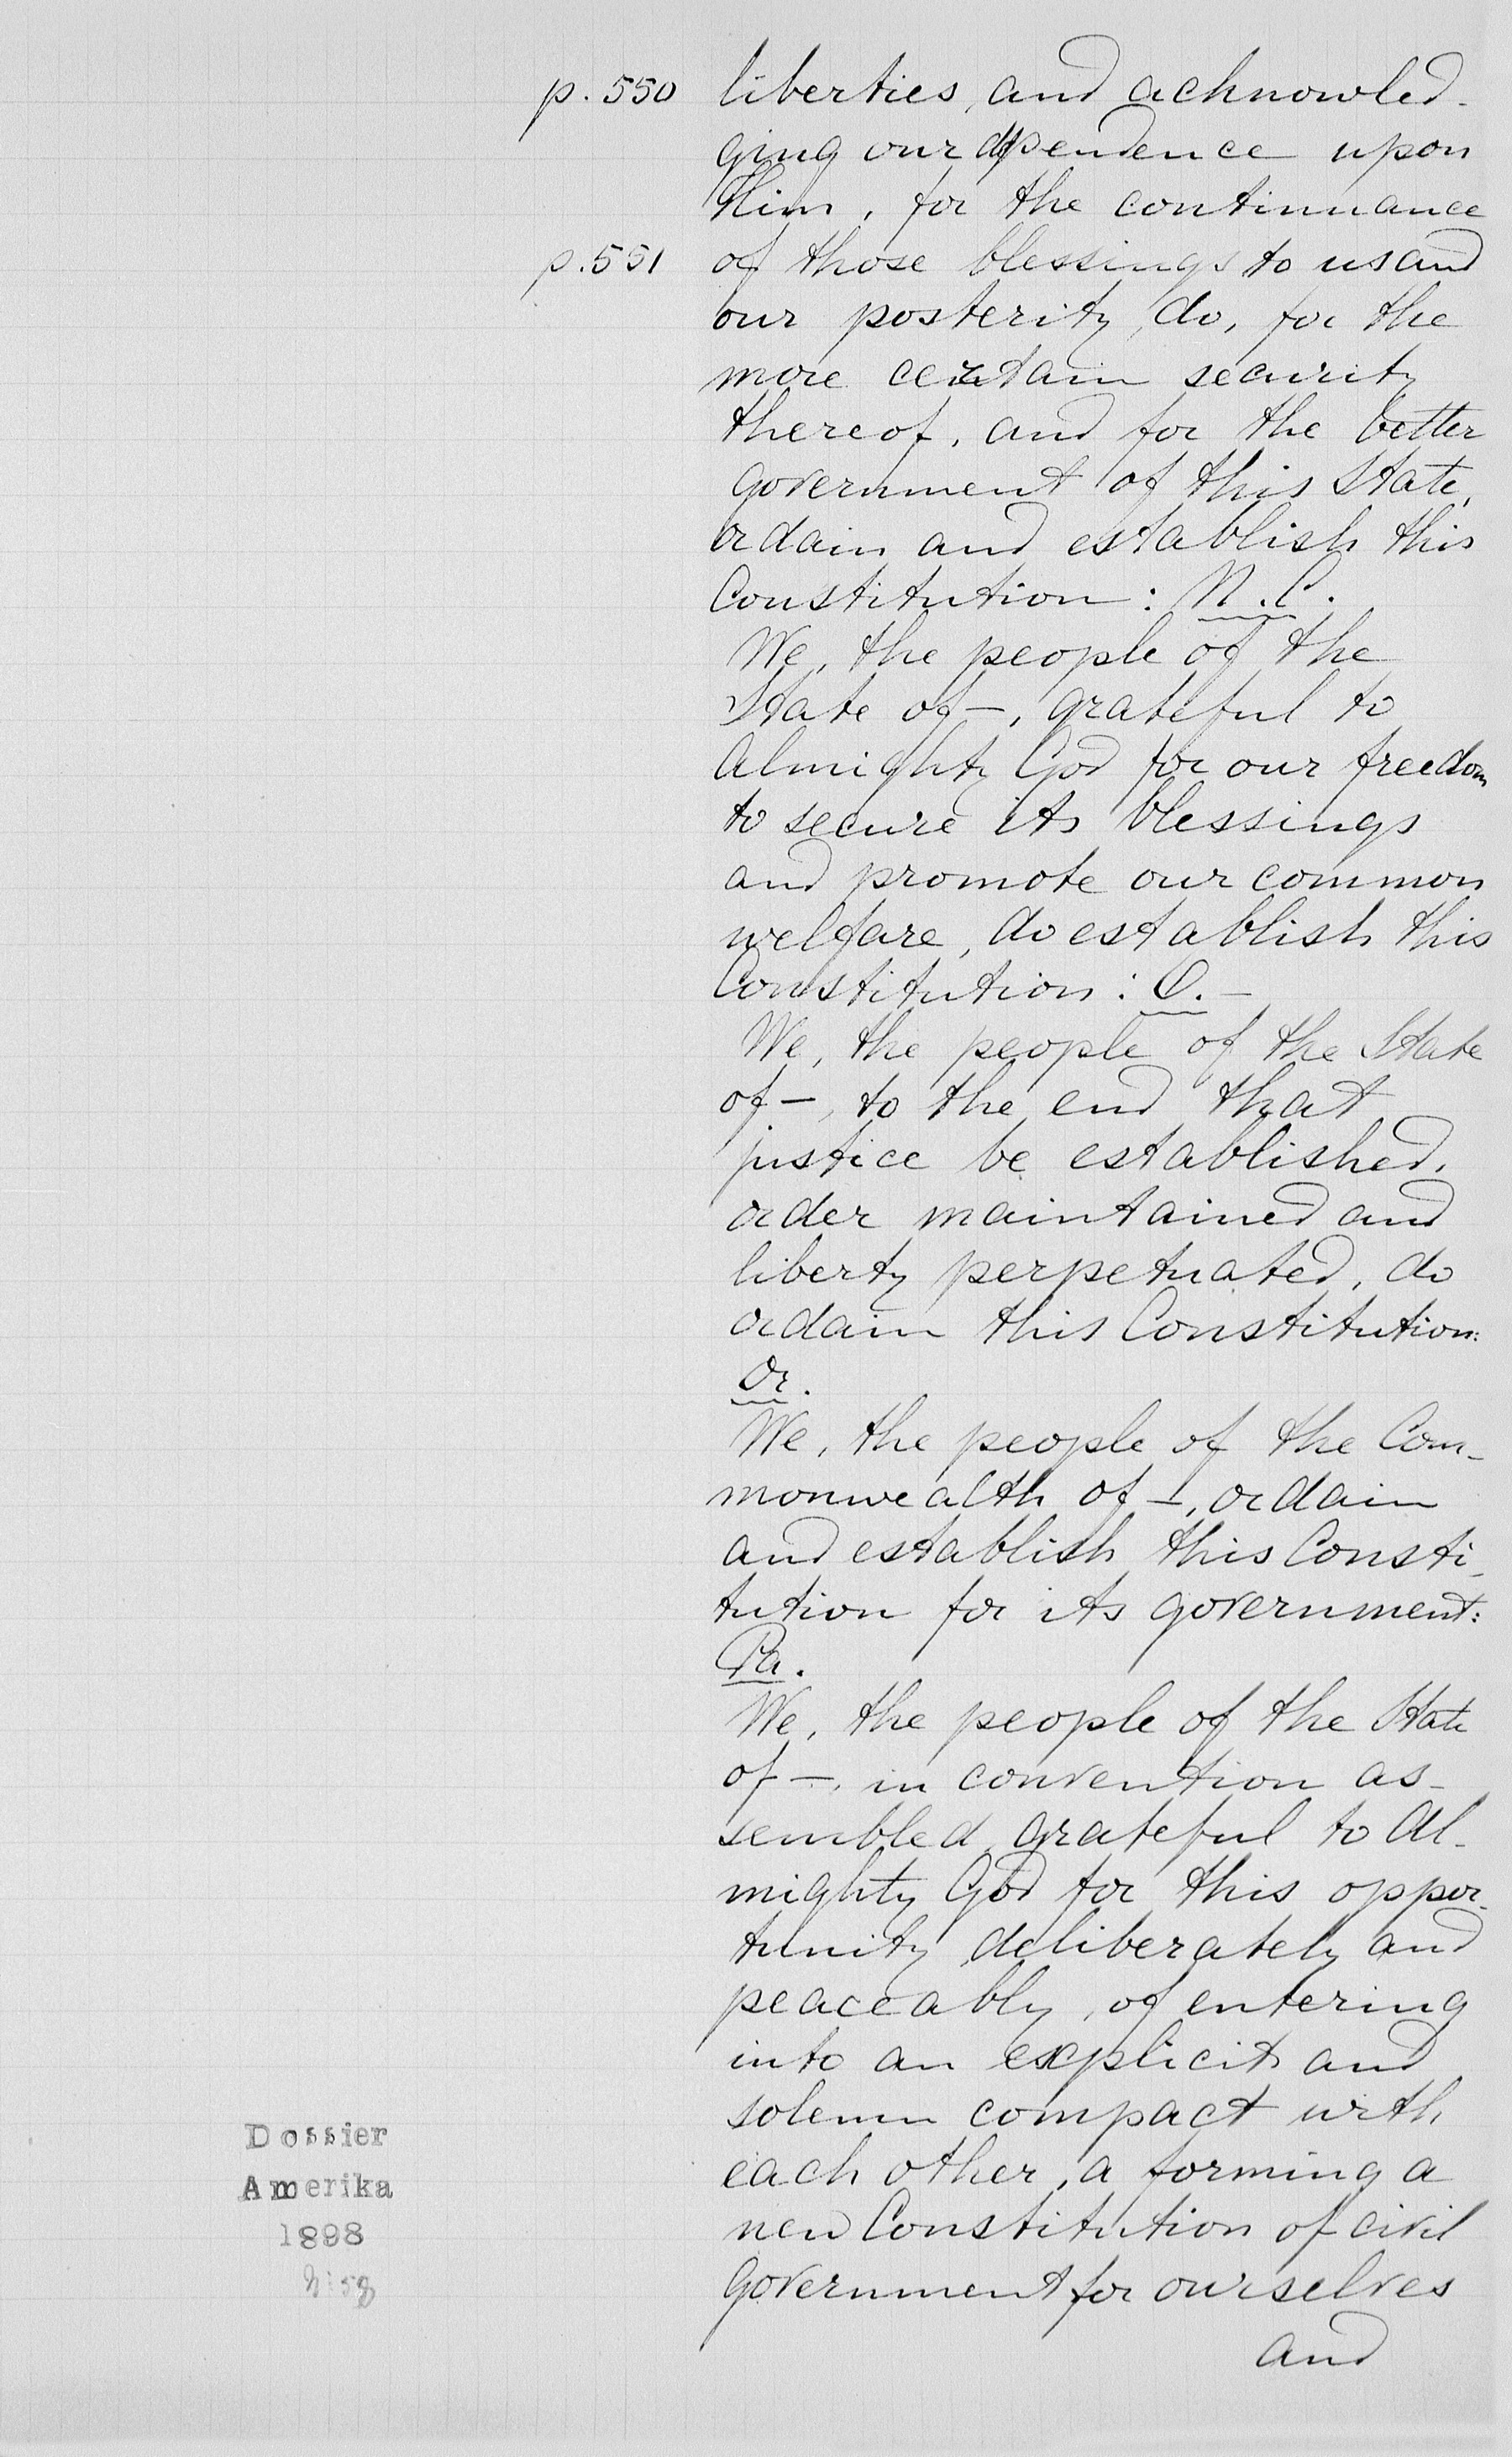 p. 550 liberties, and acknowled-
ging our dependence upon
Him, for the continuance
p. 551 of those blessings to us and
our posterity, do, for the
more certain security
thereof, and for the better
government of this State,
ordain and establish this
Constitution: N.C.
We, the people of the
State of —, grateful to
Almighty God for our freedom
to secure its blessings
and promote our common
welfare, do establish this
Constitution: O. —
We, the people of the State
of —, to the end that
justice be established,
order maintained and
liberty perpetuated, do
ordain this Constitution:
Or.
We, the people of the Com-
monwealth of —, ordain
and establish this Consti-
tution for its government:
Pa.
We, the people of the State
of —, in convention as-
sembled, grateful to Al-
mighty God for this oppor-
tunity deliberately and
peaceably, of entering
into an explicit and
solemn compact with
each other, a forming a
new Constitution of civil
government for ourselves
and
Dossier
Amerika
1898